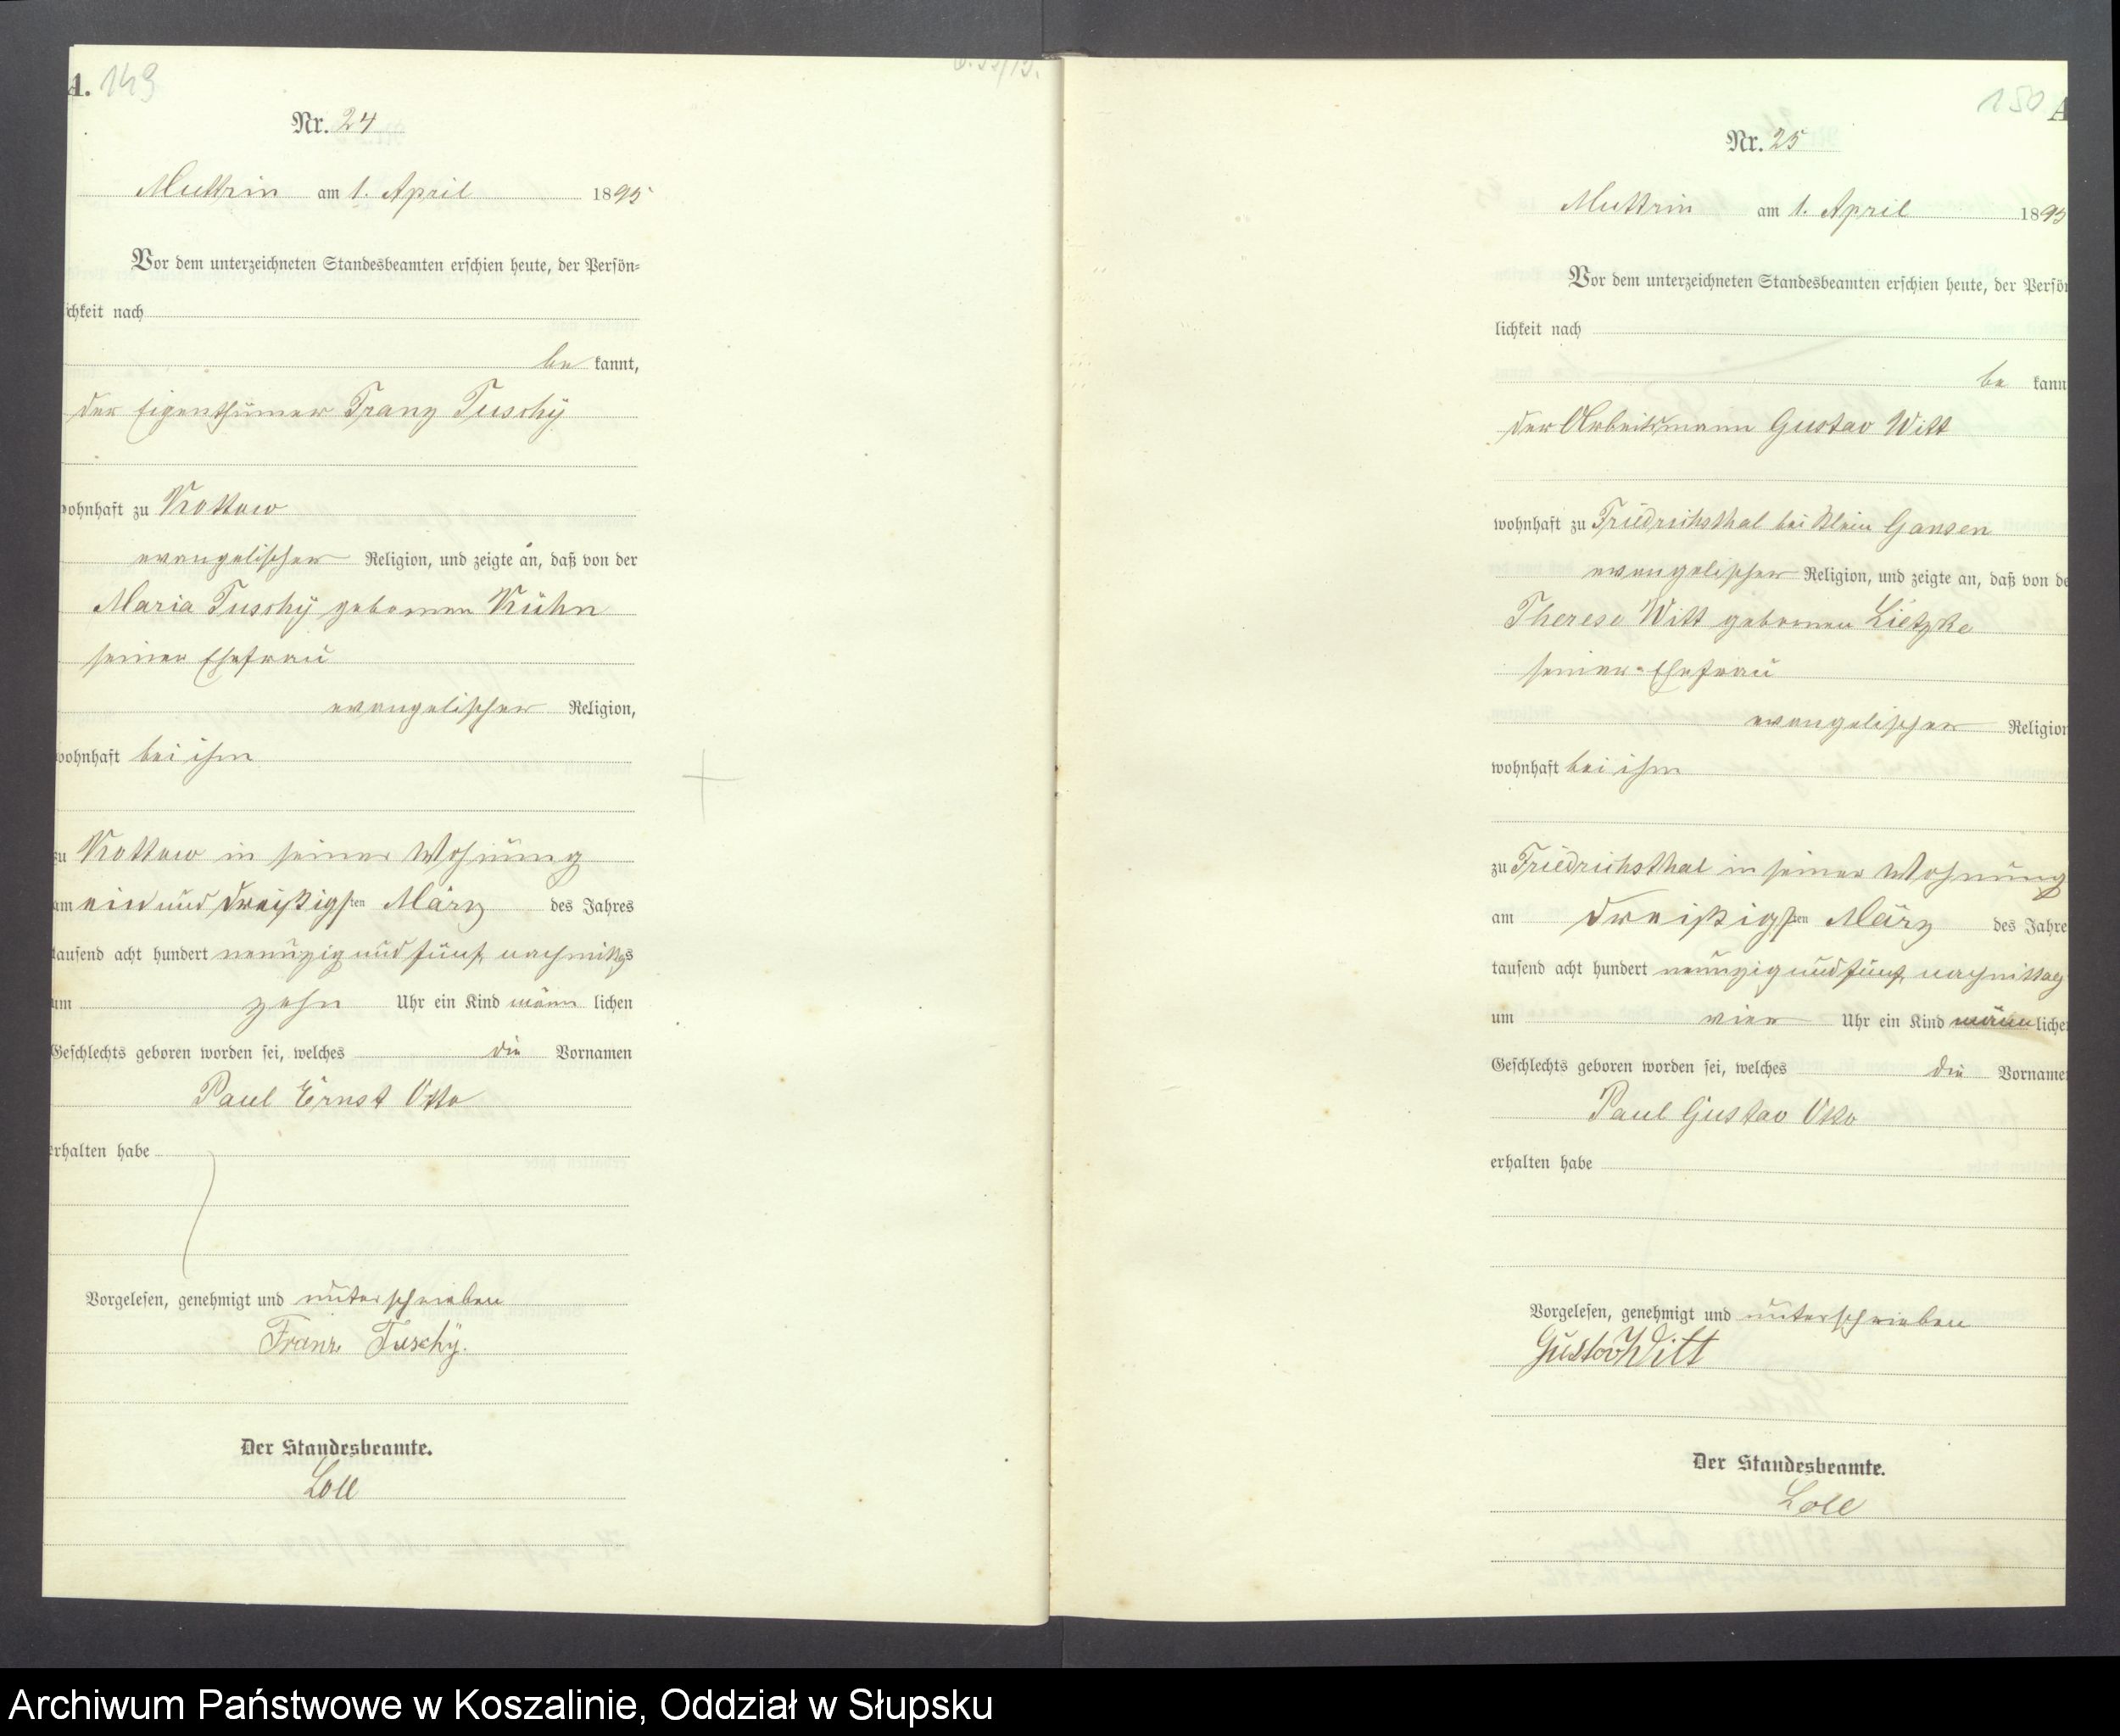 A. 149
Nr. 24
Muttrin am 1. April 1895
Vor dem unterzeichneten Standesbeamten erschien heute, der Persön-
lichkeit nach
be kannt,
der Eigenthümer Franz Tuschÿ
wohnhaft zu Kottow
evangelischer Religion, und zeigte an, daß von der
Maria Tuschÿ geborenen Kühn
seiner Ehefrau
evangelischer Religion,
wohnhaft bei ihm
zu Kottow in seiner Wohnung
am ein und dreißigsten März des Jahres
tausend acht hundert neunzig und fünf, nachmittgs
um zehn Uhr ein Kind männ lichen
Geschlechts geboren worden sei, welches die Vornamen
Paul Ernst Otto
erhalten habe
Vorgelesen, genehmigt und unterschrieben
Franz Tuschÿ.
Der Standesbeamte.
Loll
150 A
Nr. 25
Muttrin am 1. April 1895
Vor dem unterzeichneten Standesbeamten erschien heute, der Persön
lichkeit nach
be kann
der Arbeitsmann Gustav Witt
wohnhaft zu Friedrichsthal bei Klein Gansen
evangelischer Religion, und zeigte an, daß von de
Therese Witt geborenen Lietzke
seiner Ehefrau
evangelischer Religion
wohnhaft bei ihm
zu Friedrichsthal in seiner Wohnung
am dreißigsten März des Jahre
tausend acht hundert neunzig und fünf, nachmittag
um vier Uhr ein Kind männ liche
Geschlechts geboren worden sei, welches die Vorname
Paul Gustav Otto
erhalten habe
Vorgelesen, genehmigt und unterschrieben
Gustav Witt
Der Standesbeamte.
Loll
Archiwum Państwowe w Koszalinie, Oddział w Słupsku